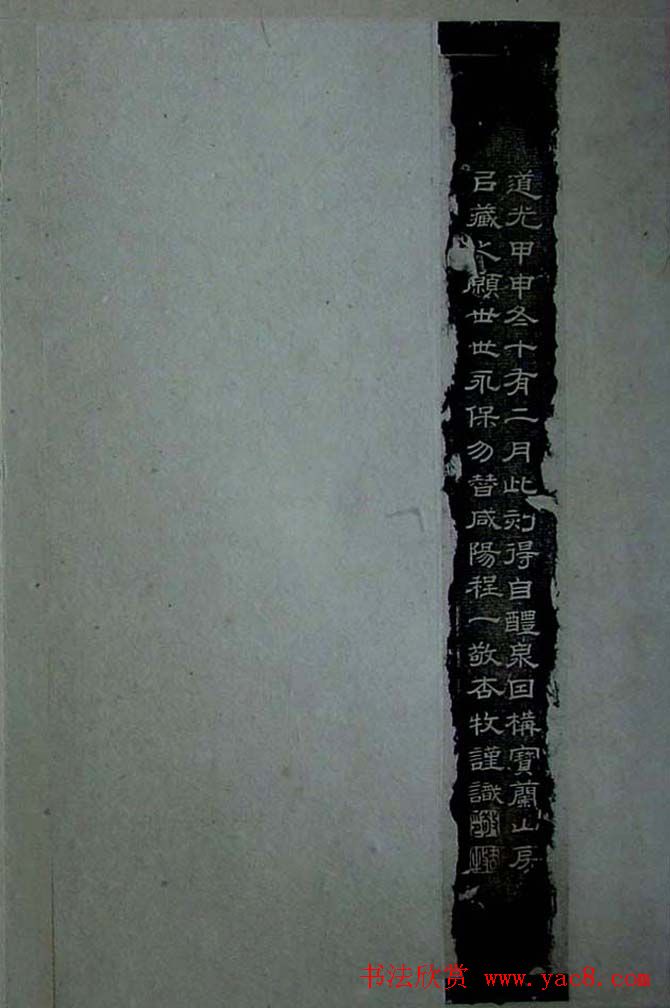 道光甲申冬十有二月此刻得自醴泉因構寶蘭山房
㠯藏之願世世永保勿替咸陽程一敬杏牧謹識
书法欣赏 www.yac8.com